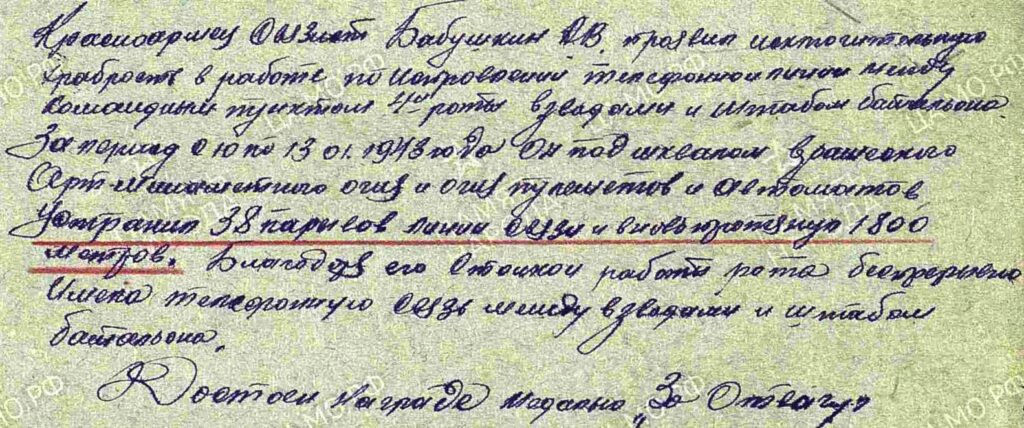 Красноармеец Связист Бабушкин А.В. проявил исключительную
храбрость в работе по исправлении телефонной линии между
командным пунктом 4ой роты взводами и штабом батальона.
За период с 10 по 13 01. 1943 года Он под шквалом вражеского
Арт минометного огня и огня пулеметов и автоматов
Устранил 38 парывов линии связи и вновь протянул 1800
метров. Благодоря его Стойкой работи рота беспрерывно
Имела телефонную связь между взводами и штабом
батальона.
Достоен Награде медалью „За Отвагу"